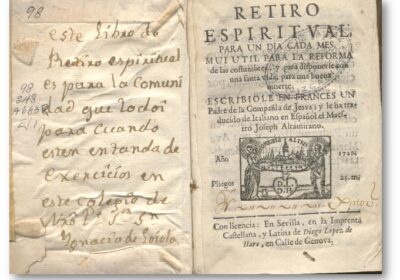 98
este libro de
Retiro espiritual
es para la Comuni
dad que todos
para Cuando
esten en tanda de
Exercicios en
este colegio de
Ignacio de Loiola
98
RETIRO
ESPIRITVAL
PARA UN DIA CADA MES.
MUI UTIL PARA LA REFORMA
de las costumbres, y para disponerse con
una santa vida, para una buena
muerte.
ESCRIBIOLE EN FRANCES UN
Padre de la Compañia de Jesus: y le ha tra-
ducido de Italiano en Español el Maes-
tro Joseph Altamirano.
Año
Pliegos
25. m.
Con licencia: En Sevilla, en la Imprenta
Castellana, y Latina de Diego Lopez de
Haro, en Calle de Genova.